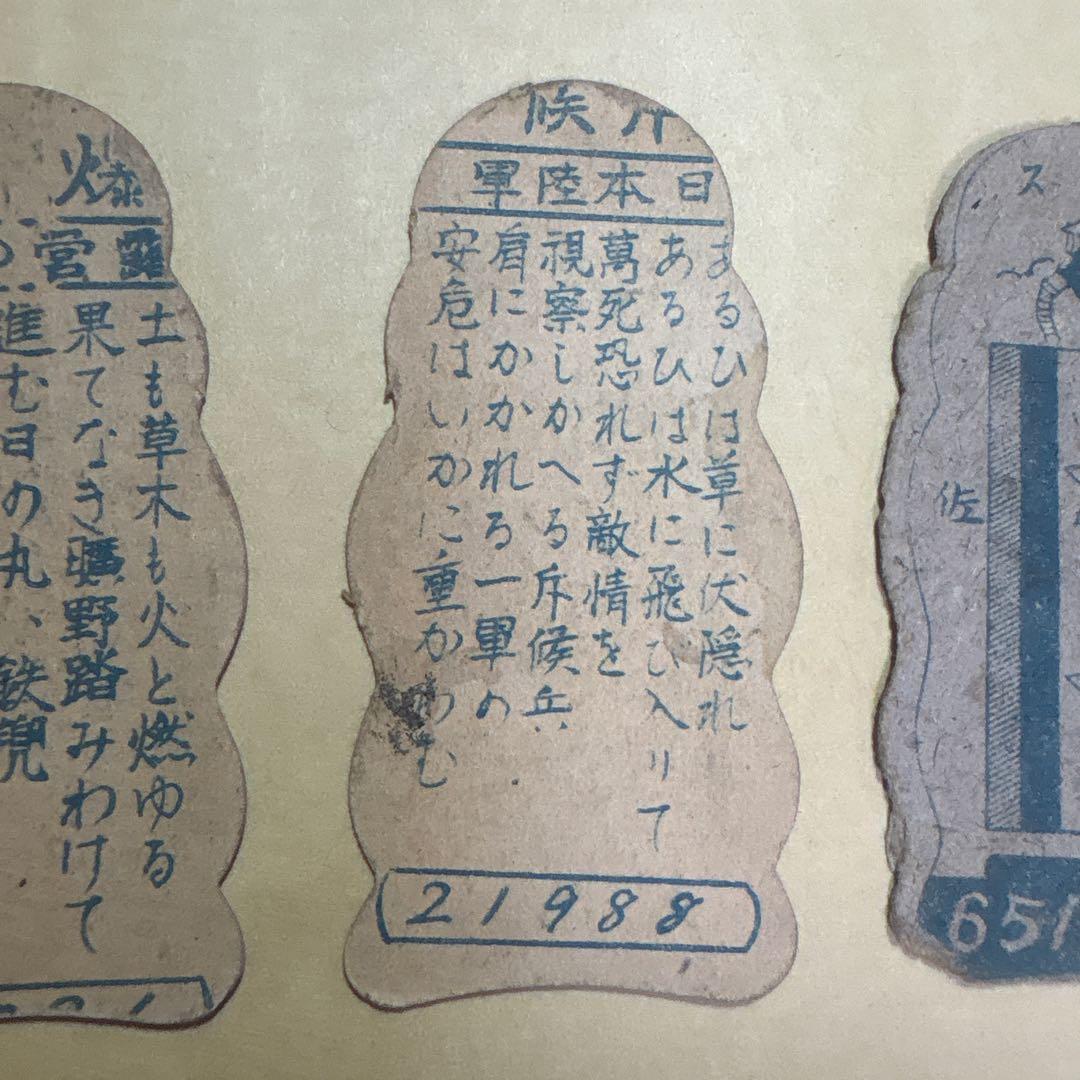 爆
露營の
土も草木も火と燃ゆる
果てなき曠野踏みわけて
進む日の丸、鉄兜
斥候
日本陸軍
あるひは草に伏隠れ
あるひは水に飛び入りて
萬死恐れず敵情を
視察しかへる斥候兵
肩にかかれる一軍の
安危はいかに重からむ
21988
ス
佐
651